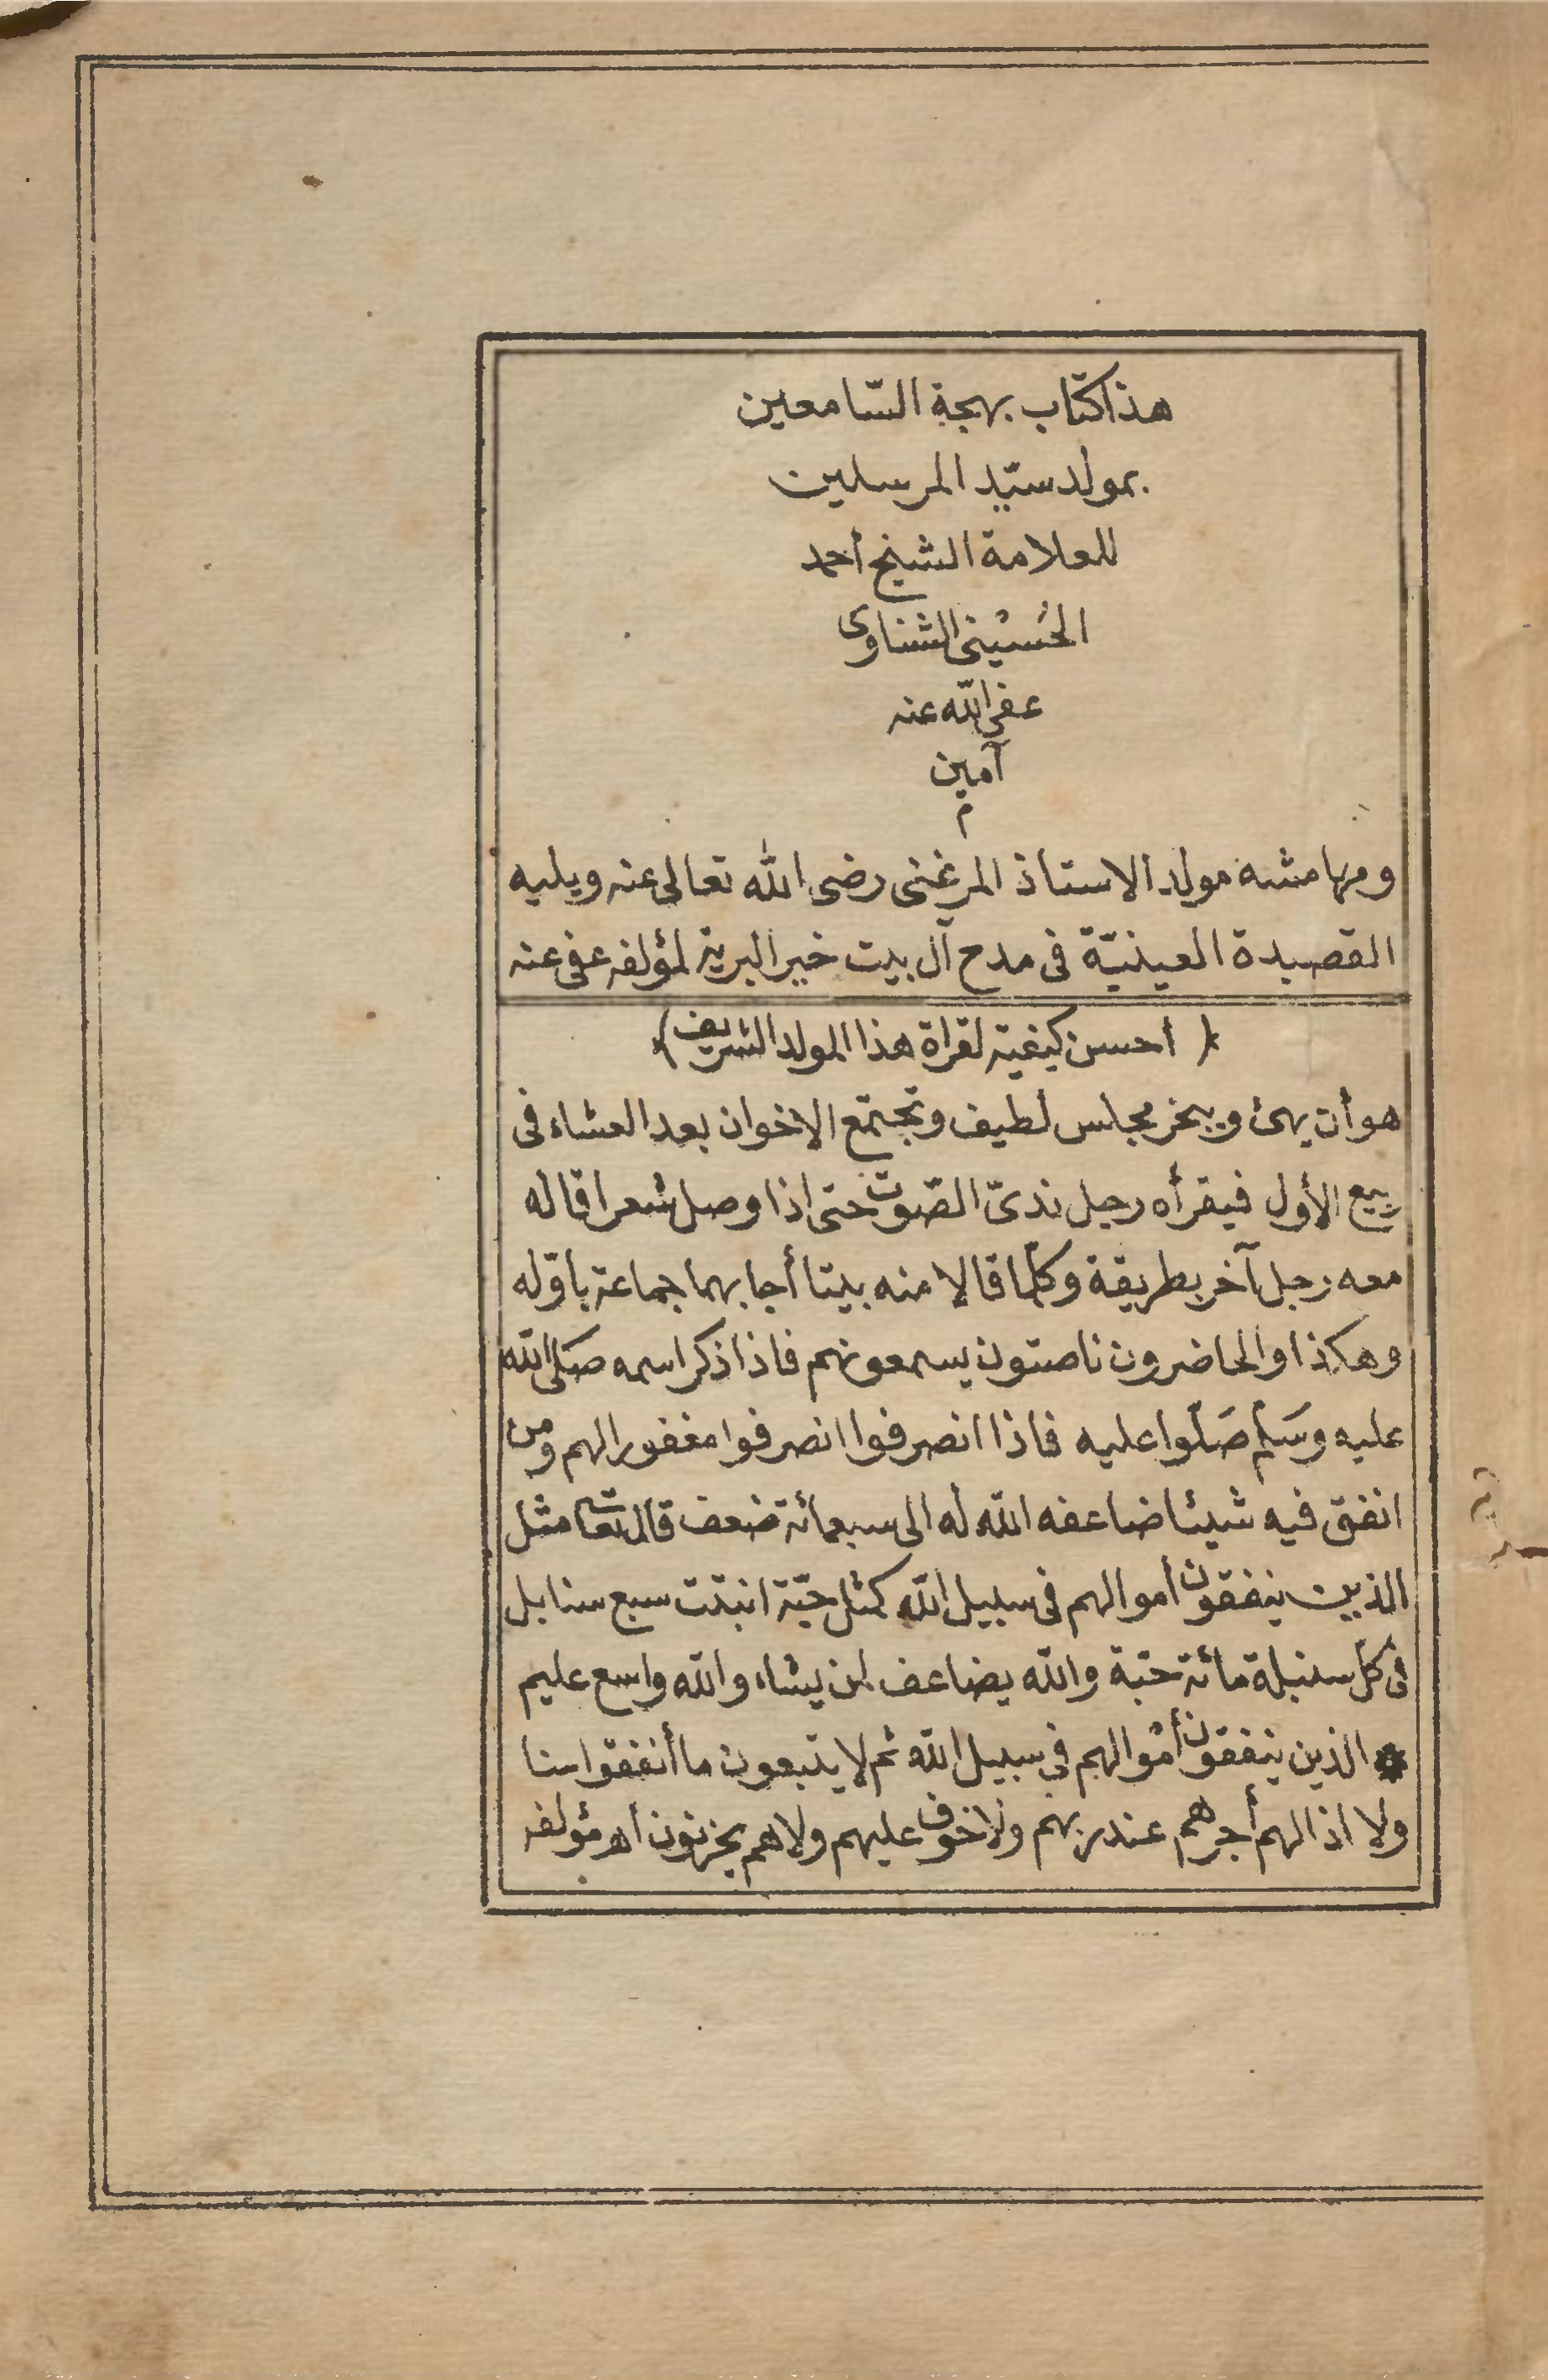 هذا كتاب بهجة السّامعين
بمولد سيّد المرسلين
للعلامة الشيخ أحمد
الحُسيْنى الشناوى
عفى الله عنه
آمين
م
وبهامشه مولد الاستاذ المرغنى رضى الله تعالى عنه ويليه
القصيدة العينيّة فى مدح آل بيت خير البرية لمؤلفه عفى عنه
﴿ أحسن كيفية لقراة هذا المولد الشريف ﴾
هو أن يهئ ويبخر مجلس لطيف وتجتمع الاخوان بعد العشاء فى
ربيع الأول فيقرأه رجل ندىّ الصّوت حتى اذا وصل شعرا قاله
معه رجل آخر بطريقة وكلّما قالا منه بيتا أجابهما جماعة باوّله
وهكذا والحاضرون ناصتون يسمعونهم فاذا ذكر اسمه صلّى الله
عليه وسَلّم صَلّوا عليه فاذا انصرفوا انصرفوا مغفورا لهم ومن
انفق فيه شيئا ضاعفه الله له الى سبعمائة ضعف قال تعالى مثل
الذين ينفقون أموالهم فى سبيل الله كمثل حبّة انبتت سبع سنابل
فى كلّ سنبلة مائة حبّة والله يضاعف لمن يشاء والله واسع عليم
* الذين ينفقون أموالهم فى سبيل الله ثم لا يتبعون ما أنفقوا منا
ولا اذا لهم أجرهم عند ربهم ولاخوف عليهم ولاهم يحزنون اهـ مؤلفه